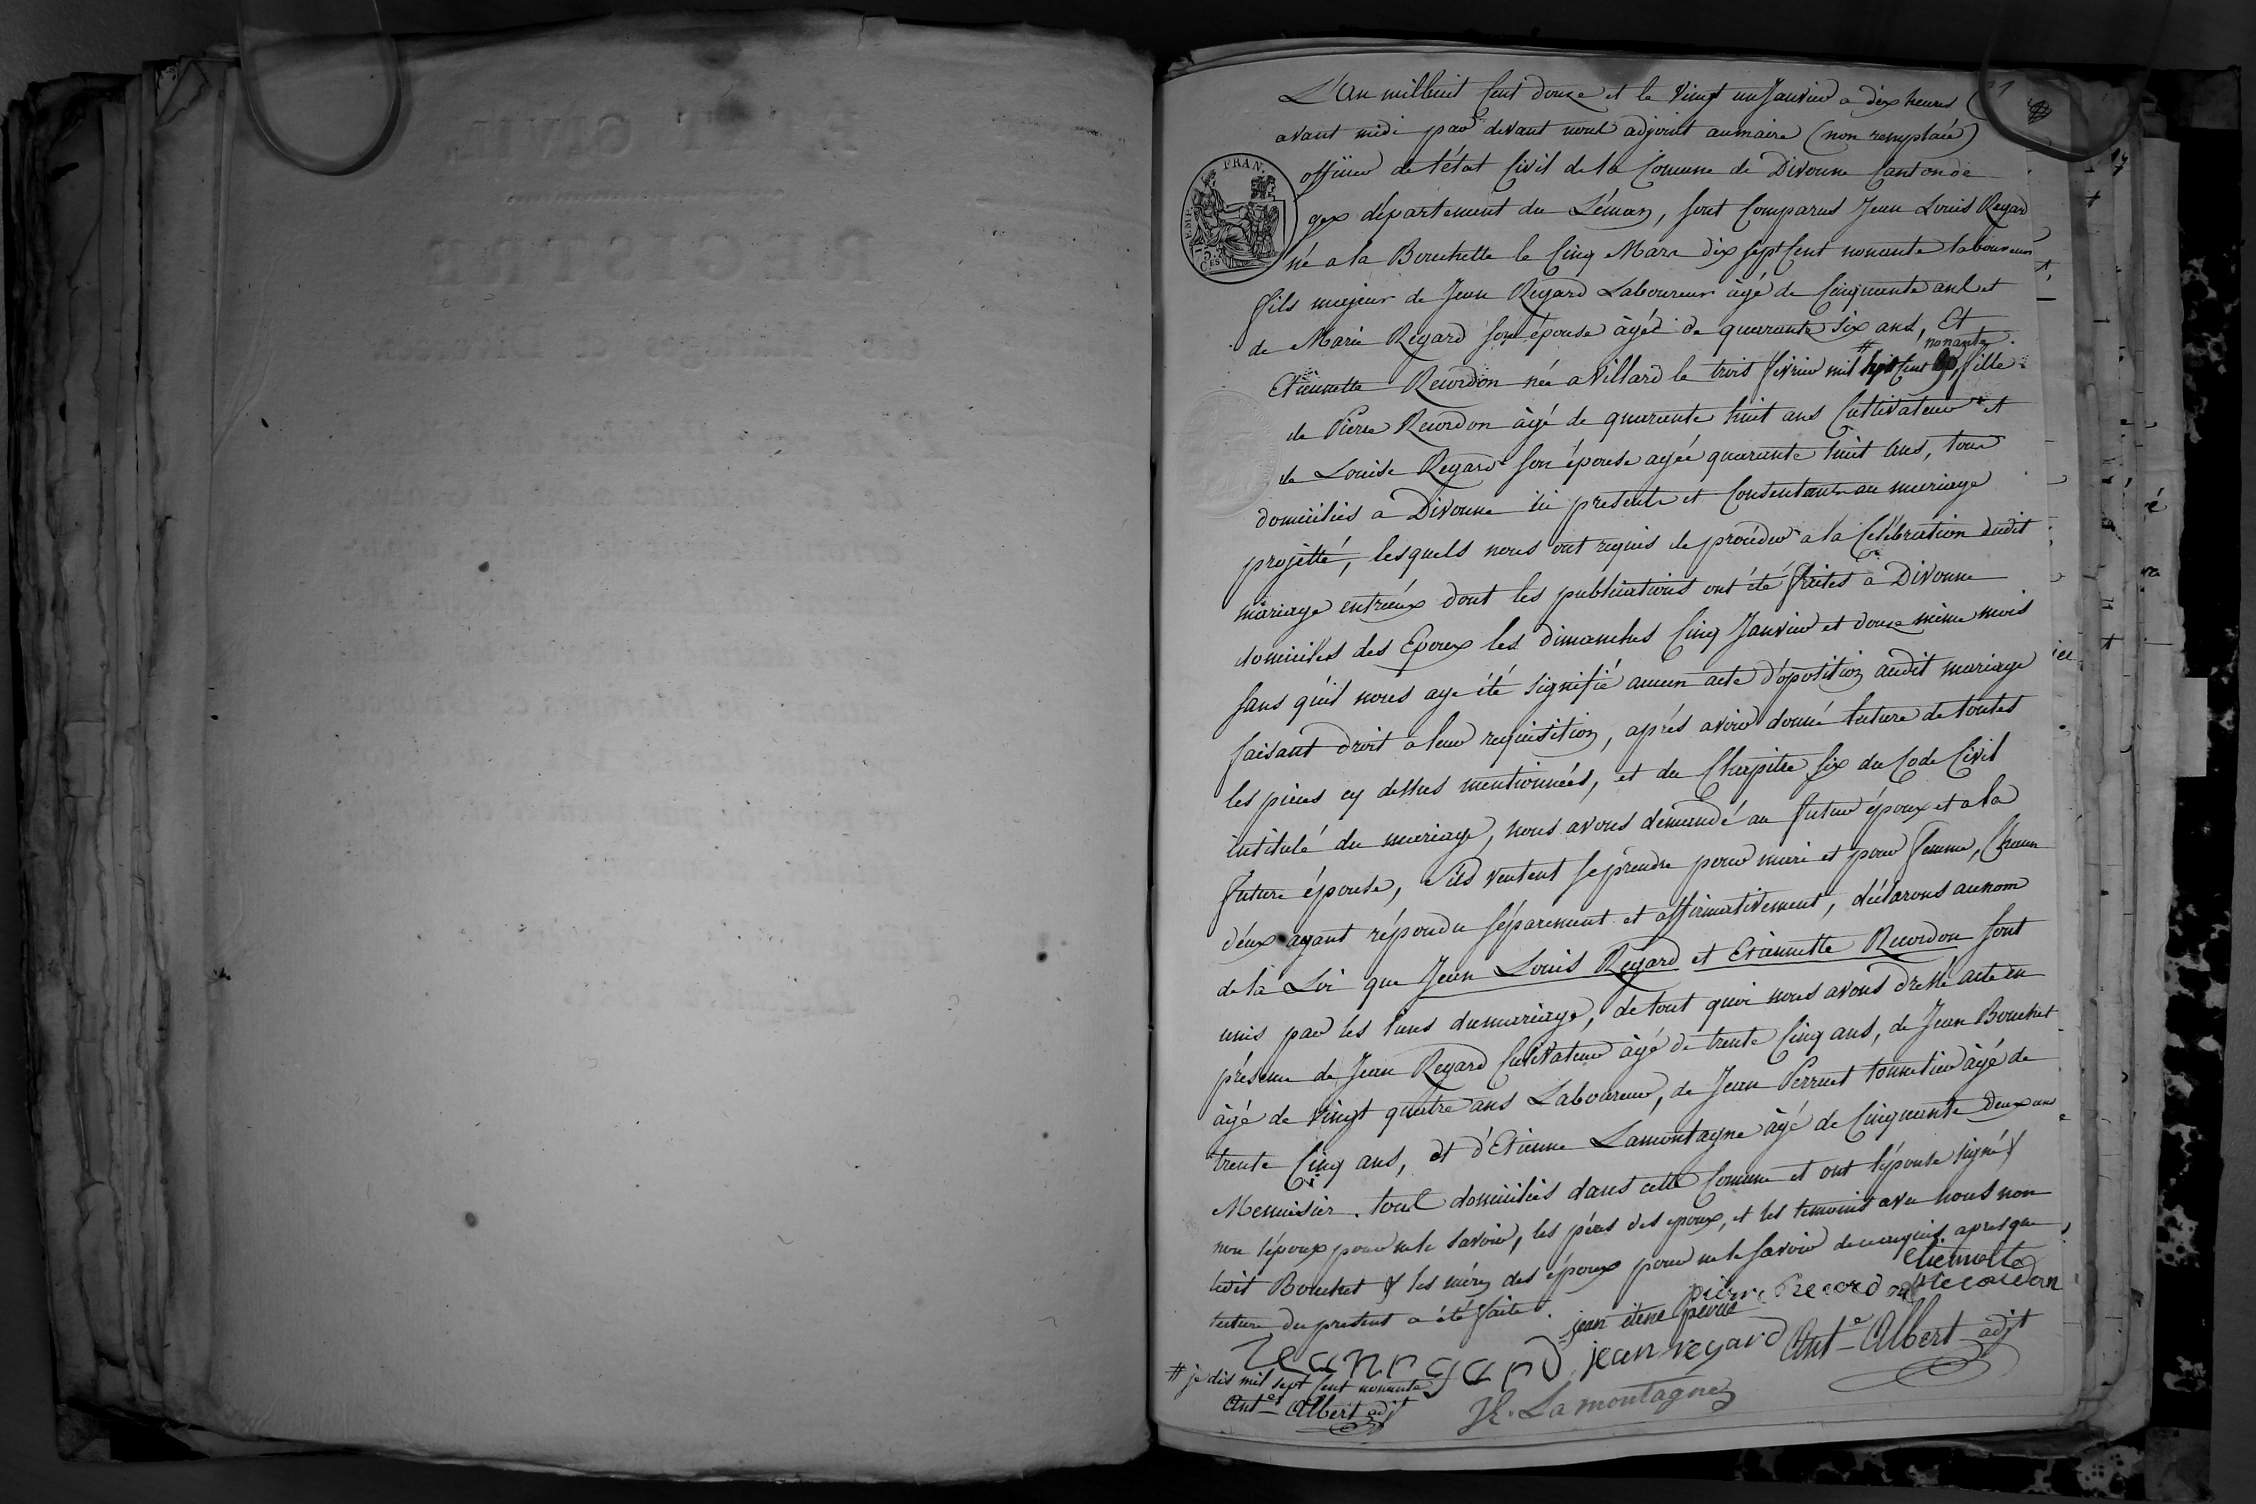 L'An milhuit Cent douze et le Vingt un Janvier a dix heures
avant midi par devant nous adjoint au maire (non remplacé)
FRAN.
EMP.
75 C.ES
officier de l'état Civil de la Comune de Divonne Canton de
gex département du Léman, sont Comparus Jean Louis Regard
né a la Bouchette le Cinq Mars dix sept Cent nonante laboureur
fils majeur de Jean Regard Laboureur âgé de Cinquante ans et
de Marie Regard son épouse âgée de quarante six ans, Et
# nonante
Etiennette Recordon née a Villard le trois fevrier mil sept Cent , fille
de Pierre Recordon âgé de quarante huit ans Cultivateur et
de Louise Regard son épouse agée quarante huit ans, tous
domiciliés a Divonne ici presents et Consentants au mariage
projetté, lesquels nous ont requis de procéder a la Célébration dudit
mariage entréux dont les publications ont été faites à Divonne
domiciles des Epoux les dimanches Cinq Janvier et douze même mois
sans qu'il nous aye été signifié aucun acte d'oposition audit mariage
faisant droit a leur requisition, aprés avoir donné lecture de toutes
les pieces cy dessus mentionnées, et du Chapitre six du Code Civil
intitulé du mariage, nous avons demandé au futur époux et a la
future épouse, s'ils veulent se prendre pour mari et pour femme, Chacun
d'eux ayant répondu séparement et affirmativement, déclarons au nom
de la Loi que Jean Louis Regard et Etiennette Recordon sont
unis par les liens du mariage, de tout quoi nous avons dressé acte en
présence de Jean Regard Cultivateur âgé de trente Cinq ans, de Jean Bouchet
âgé de vingt quatre ans Laboureur, de Jean Perruet tonnelier âgé de
trente Cinq ans, et d'Etienne Lamontagne âgé de Cinquante deux ans
Menuisier. tous domiciliés dans cette Comune et ont l'épouse signé
non l'époux pour ne le savoir, les péres des epoux, et les temoins avec nous non
ledit Bouchet & les méres des époux pour ne le savoir de ce requis, apres que
lecture du present a été faite.
Etiennette
pierre Recordon Recordon
jean
jean regard Ant.e Albert adjt
# je dis mil sept Cent nonante
Ant.e Albert adjt
Lamontagne